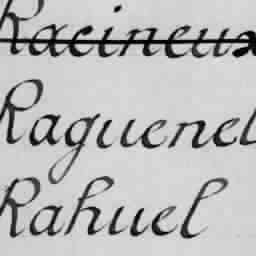 Racineux
Raguenel
Rahuel